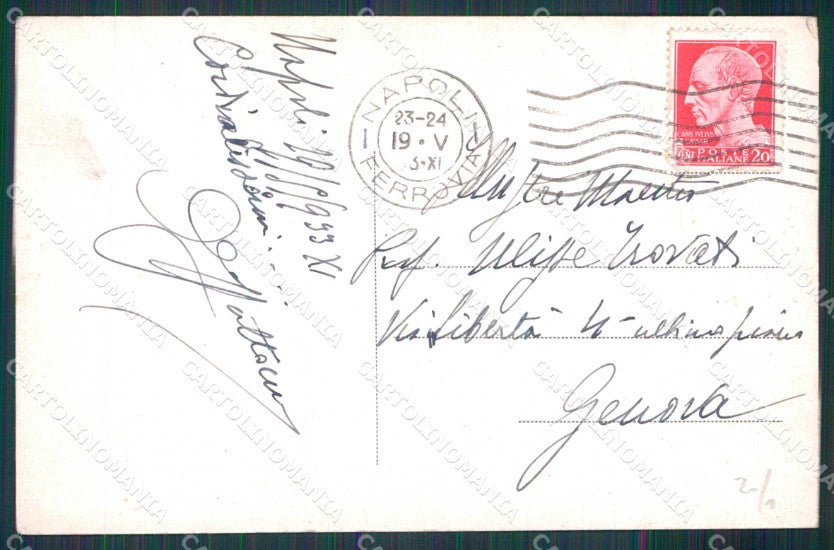 Napoli 19/5/933 XI
Cordialissimi
NAPOLI
23-24
19 · V
3-XI
FERROVIA
POSTE
ITALIANE 20
CENT
Illustre Maestro
Prof. Ulisse Trovati
Via Libertà 4 - ultimo piano
Genova
CARTOLINOMANIA